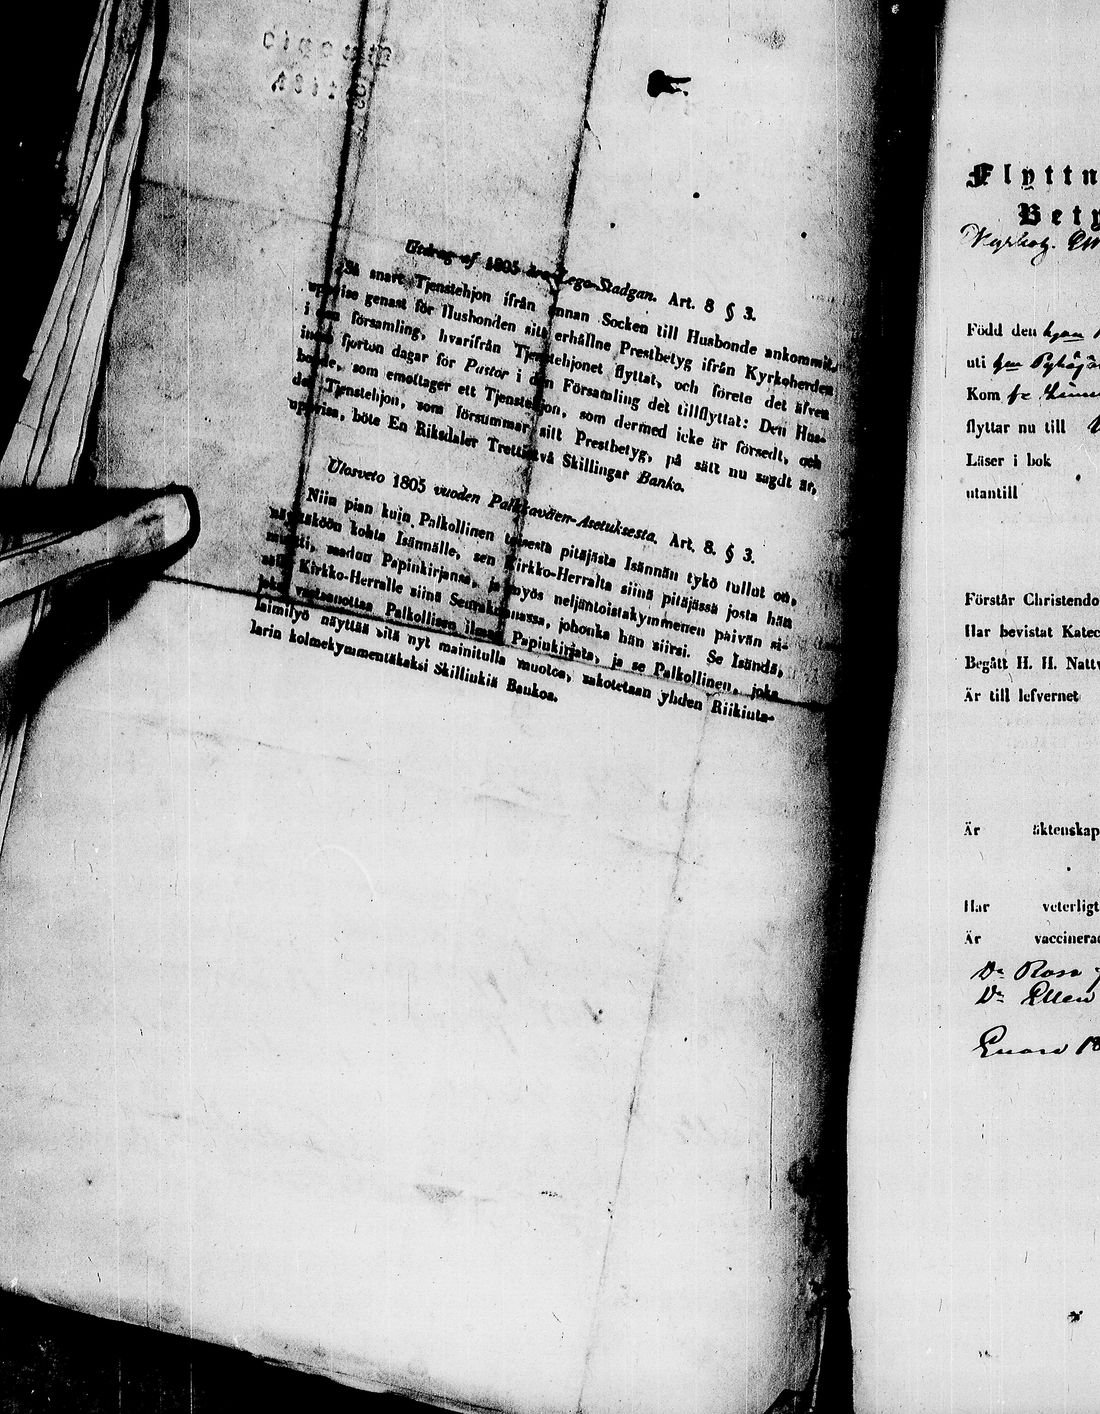 Utdrag af 1805 års Lego-Stadgan. Art. 8 § 3.
Så snart Tjenstehjon ifrån annan Socken till Husbonde ankommit,
uppvise genast för Husbonden sitt erhållne Prestbetyg ifrån Kyrkoherden
i den församling, hvarifrån Tjenstehjonet flyttat, och förete det äfven
inom fjorton dagar för Pastor i den Församling det tillflyttat: Den Hus-
bonde, som emottager ett Tjenstehjon, som dermed icke är försedt, och
det Tjenstehjon, som försummar sitt Prestbetyg, på sätt nu sagdt är,
uppvisa, böte En Riksdaler Trettiotvå Skillingar Banko.
Ulosveto 1805 vuoden Palkkaväen-Asetuksesta. Art. 8. § 3.
Niin pian kuin Palkollinen toisesta pitäjästa Isännän tykö tullut on,
näyttäköön kohta Isännälle, sen Kirkko-Herralta siinä pitäjässä josta hän
muutti, saadun Papinkirjansa, ja myös neljäntoistakymmenen päivän si-
sällä Kirkko-Herralle siinä Seurakunnassa, johonka hän siirsi. Se Isändä,
joka vastaanottaa Palkollisen ilman Papinkirjata, ja se Palkollinen, joka
laimilyö näyttää sitä nyt mainitulla muotoa, sakotetaan yhden Riikinta-
larin kolmekymmentäkaksi Skillinkiä Bankoa.
Flyttn
Bety
Född den
uti
Kom
flyttar nu till
Läser i bok
utantill
Förstår Christendo
Har bevistat Katec
Begått H. H. Nattv
Är till lefvernet
Är äktenskap
Har veterligt
Är vaccinerad
Dr Rosa
Dr Ellen